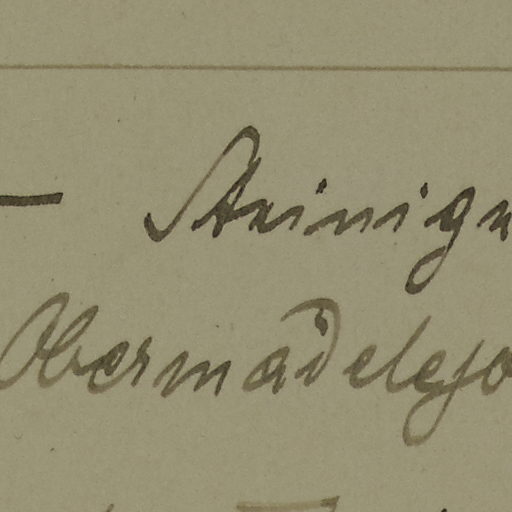 — Steinign
Obermädelejo